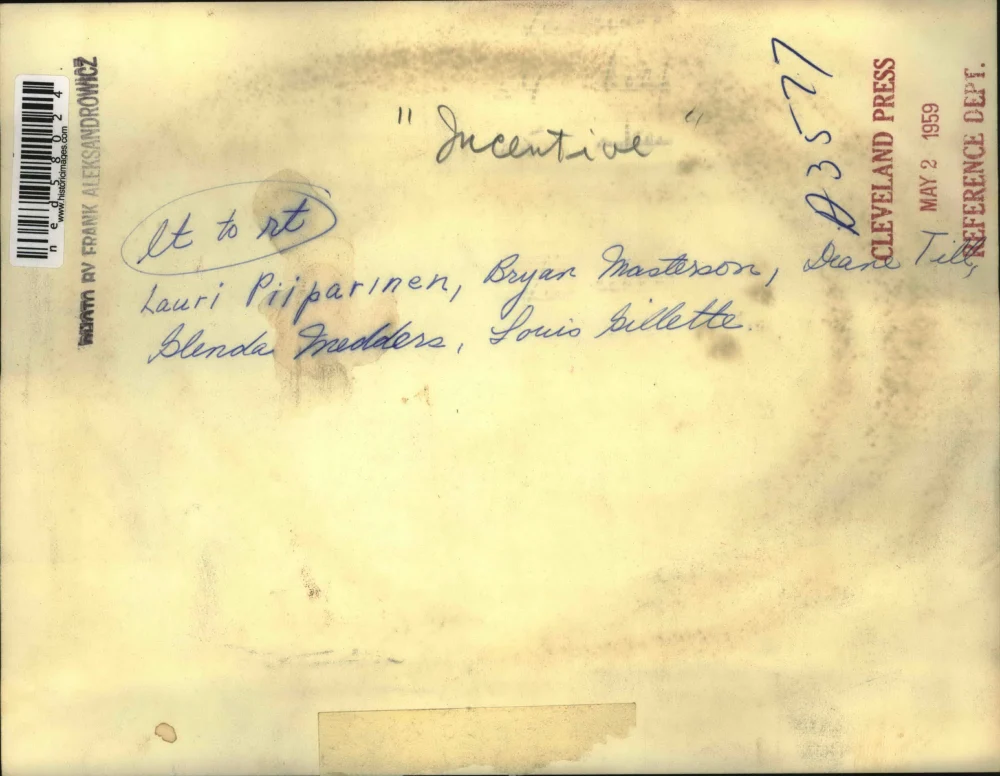 "Incentive"
lt to rt
Lauri Piiparinen, Bryan Masterson, Diane Till,
Glenda Medders, Louis Gillette.
A3577
CLEVELAND PRESS
MAY 2 1959
REFERENCE DEPT.
PHOTO BY FRANK ALEKSANDROWICZ
www.historicimages.com
ned58024